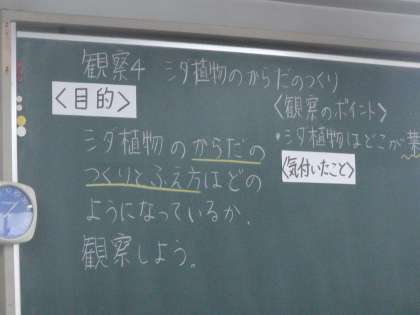 観察4 シダ植物のからだのつくり
<目的>
シダ植物のからだの
つくりとふえ方はどの
ようになっているか。
観察しよう。
<観察のポイント>
・シダ植物はどこが葉
<気付いたこと>